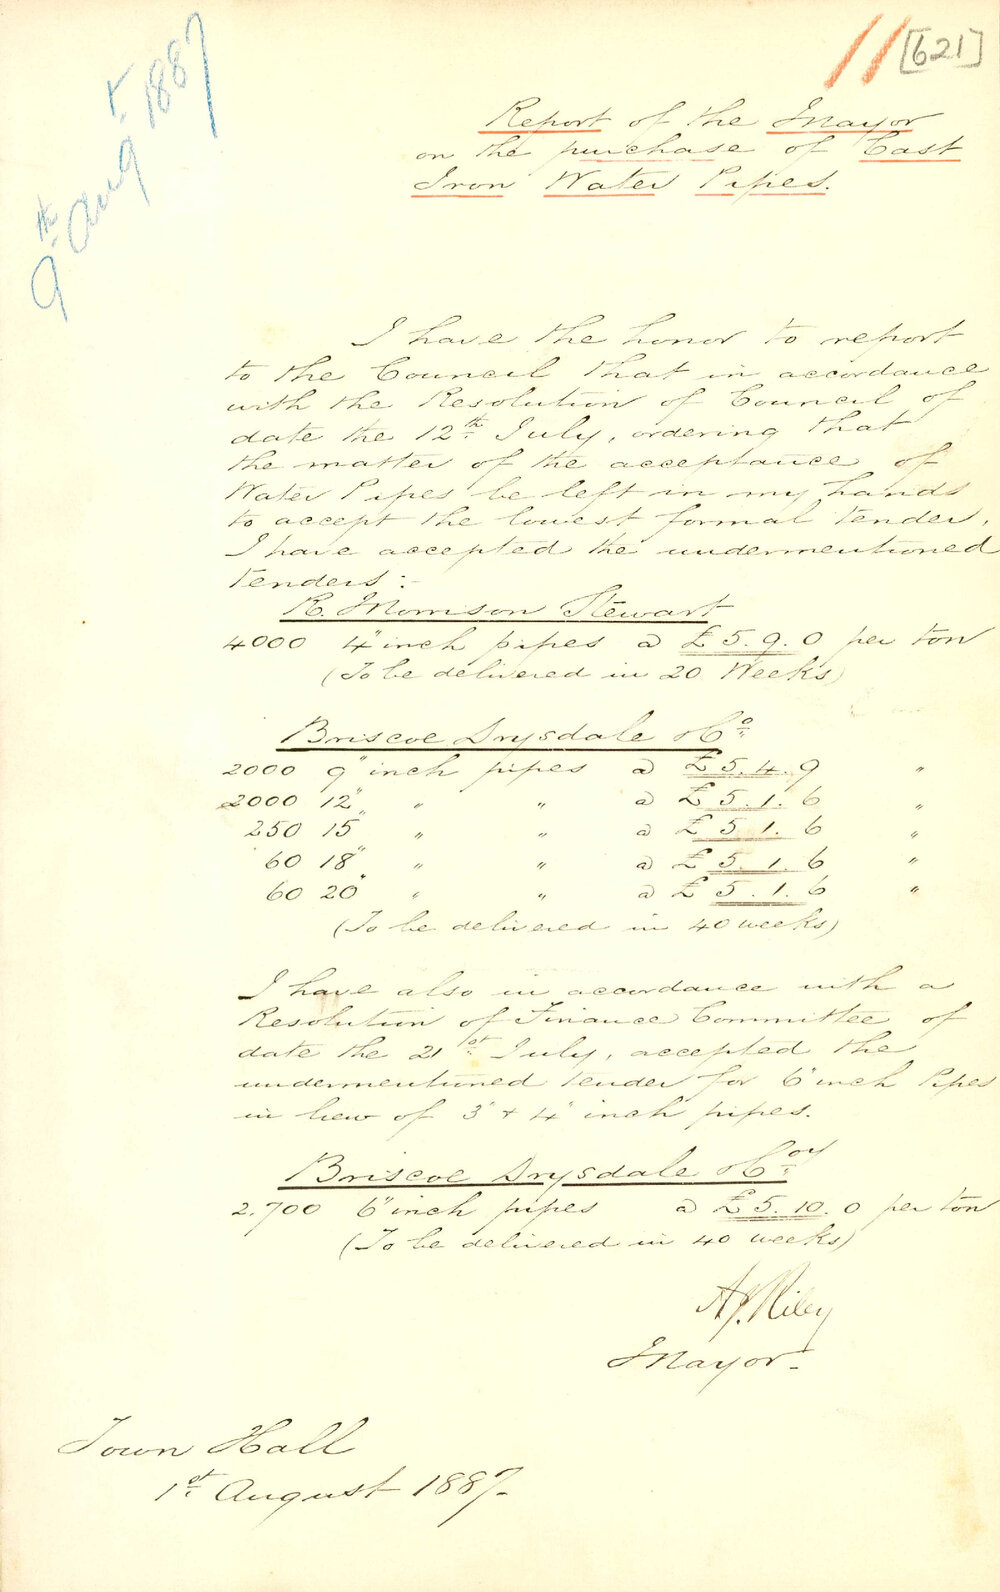 11 [621]
9th Augt 1887
Report of the Mayor
on the purchase of Cast
Iron Water Pipes.
I have the honor to report
to the Council that in accordance
with the Resolution of Council of
date the 12th July, ordering that
the matter of the acceptance of
Water Pipes be left in my hands
to accept the lowest formal tender,
I have accepted the undermentioned
tenders:-
R. Morrison Stewart
4000 4" inch pipes @ £5.9.0 per ton
(To be delivered in 20 Weeks)
Briscoe Drysdale & Co
2000 9" inch pipes @ £5.4.9 "
2000 12" " " @ £5.1.6 "
250 15" " " @ £5.1.6 "
60 18" " " @ £5.1.6 "
60 20" " " @ £5.1.6 "
(To be delivered in 40 weeks)
I have also in accordance with a
Resolution of Finance Committee of
date the 21st July, accepted the
undermentioned tender for 6" inch Pipes
in liew of 3" & 4" inch pipes.
Briscoe Drysdale & Coy
2,700 6" inch pipes @ £5.10.0 per ton
(To be delivered in 40 weeks)
A J. Riley
Mayor-
Town Hall
1st August 1887-